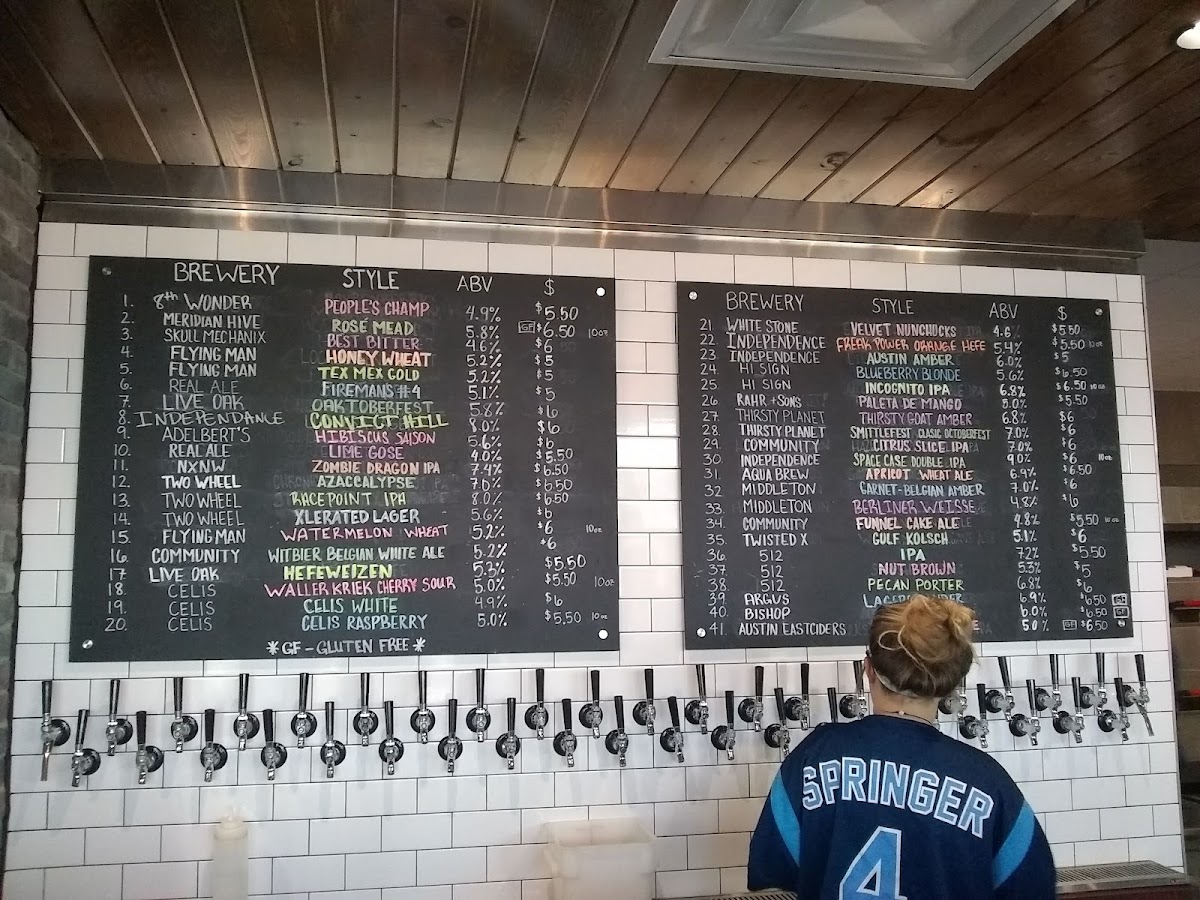 BREWERY STYLE ABV $
1. 8th WONDER PEOPLE'S CHAMP 4.9% $5.50
2. MERIDIAN HIVE ROSÉ MEAD 5.8% GF $6.50 10oz
3. SKULL MECHANIX BEST BITTER 4.6% $6
4. FLYING MAN HONEY WHEAT 5.2% $5
5. FLYING MAN TEX MEX GOLD 5.2% $5
6. REAL ALE FIREMANS #4 5.1% $5
7. LIVE OAK OAKTOBERFEST 5.8% $6
8. INDEPENDANCE CONVICT HILL 8.0% $6
9. ADELBERT'S HIBISCUS SAISON 5.6% $6
10. REAL ALE LIME GOSE 4.0% $5.50
11. NXNW ZOMBIE DRAGON IPA 7.4% $6.50
12. TWO WHEEL AZACCALYPSE 7.0% $6.50
13. TWO WHEEL RACE POINT IPA 8.0% $6.50
14. TWO WHEEL XLERATED LAGER 5.6% $6
15. FLYING MAN WATERMELON WHEAT 5.2% $6 10oz
16. COMMUNITY WITBIER BELGIAN WHITE ALE 5.2% $6
17 LIVE OAK HEFEWEIZEN 5.3% $5.50
18. CELIS WALLER KRIEK CHERRY SOUR 5.0% $5.50 10oz
19. CELIS CELIS WHITE 4.9% $6
20. CELIS CELIS RASPBERRY 5.0% $5.50 10oz
*GF - GLUTEN FREE*
BREWERY STYLE ABV $
21. WHITE STONE VELVET NUNCHUCKS 4.6% $5.50
22. INDEPENDENCE FREAK POWER ORANGE HEFE 5.4% $5.50 10oz
23. INDEPENDENCE AUSTIN AMBER 6.0% $5
24. HI SIGN BLUEBERRY BLONDE 5.6% $6.50
25. HI SIGN INCOGNITO IPA 6.8% $6.50 10oz
26. RAHR + SONS PALETA DE MANGO 5.0% $5.50
27. THIRSTY PLANET THIRSTY GOAT AMBER 6.8% $6
28. THIRSTY PLANET SMITTLEFEST CLASIC OCTOBERFEST 7.0% $6
29. COMMUNITY CITRUS SLICE IPA 7.0% $6
30. INDEPENDENCE SPACE CASE DOUBLE IPA 9.0% $6 10oz
31. AQUA BREW APRICOT WHEAT ALE 6.9% $6.50
32 MIDDLETON GARNET-BELGIAN AMBER 7.0% $6
33. MIDDLETON BERLINER WEISSE 4.8% $6
34. COMMUNITY FUNNEL CAKE ALE 4.8% $5.50 10oz
35. TWISTED X GULF KOLSCH 5.1% $6
36. 512 IPA 7.2% $5.50
37. 512 NUT BROWN 5.3% $5
38. 512 PECAN PORTER 6.8% $6
39. ARGUS 6.9% $6.50 GF
40. BISHOP 6.0% $6.50 GF
41. AUSTIN EASTCIDERS 5.0% GF $6.50
SPRINGER
4